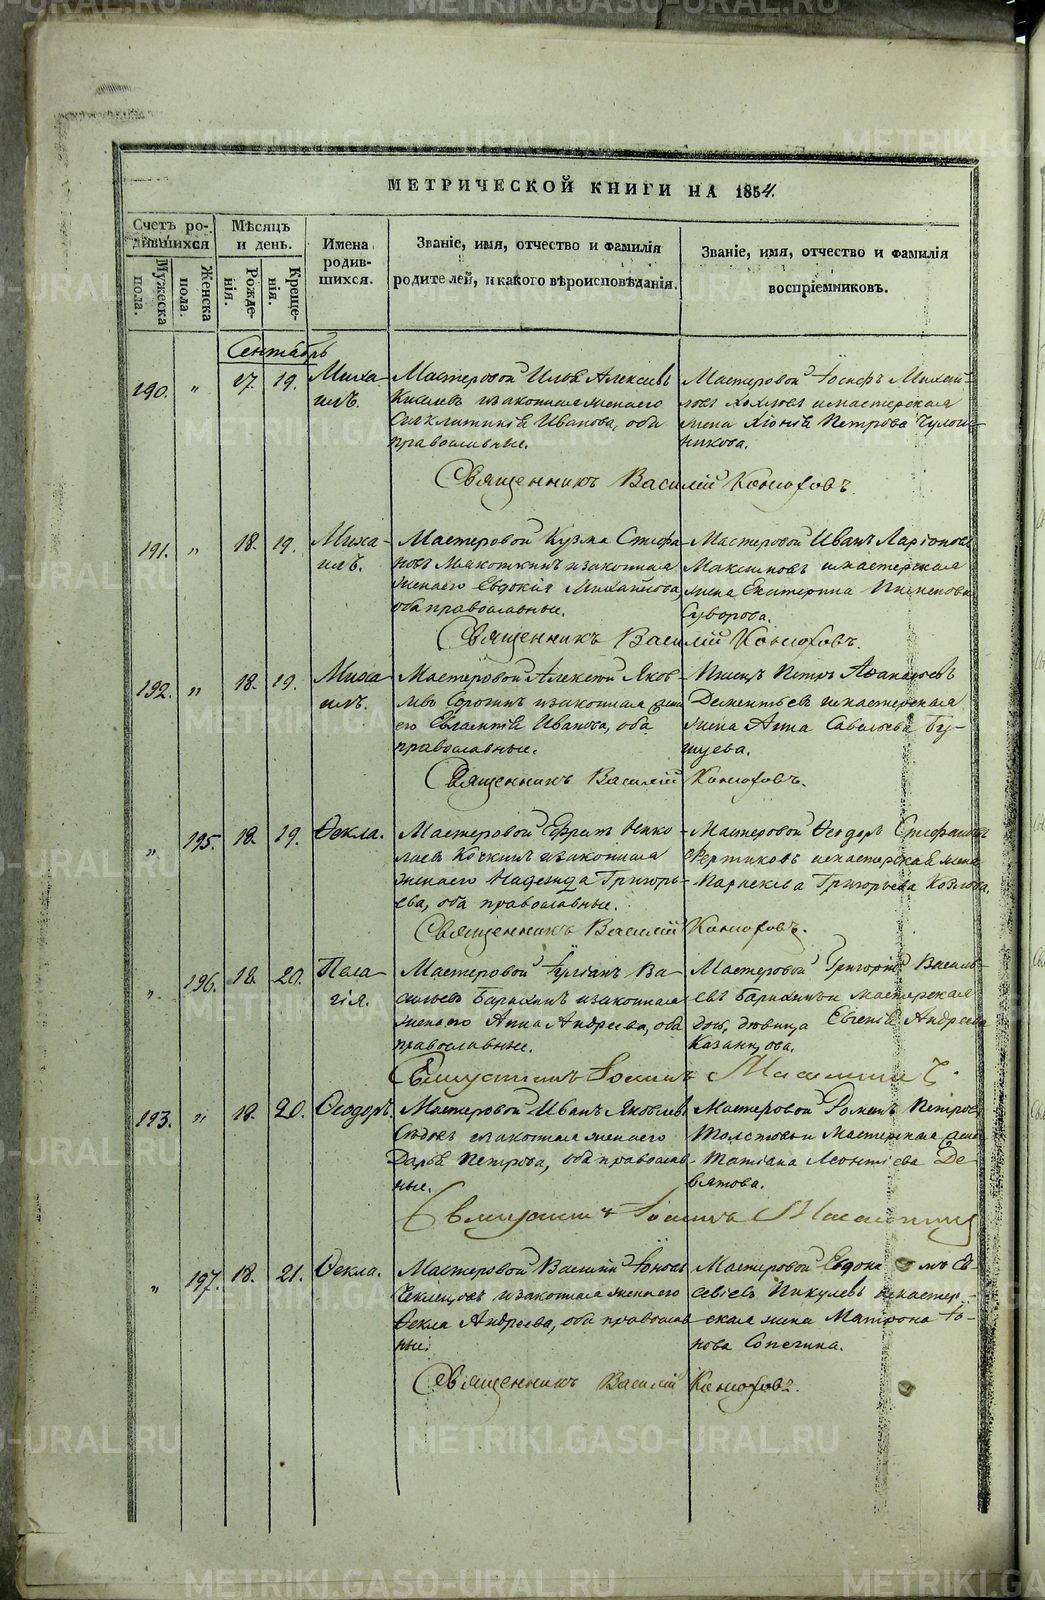 МЕТРИЧЕСКОЙ КНИГИ НА 1854.
Счетъ родившихся
Мужеска пола.
Женска пола.
Мѣсяцъ и день.
Рожденія.
Крещенія.
Имена родившихся.
Званіе, имя, отчество и фамилія
родителей, и какого вѣроисповѣданія.
Званіе, имя, отчество и фамилія
воспріемниковъ.
Сентябрь
190. " 17. 19. Михаилъ.
Мастеровой Илья Алексѣевъ
Киселевъ и законная жена его
Иванова, оба
православные.
Мастеровой Іосифъ Михай-
ловъ Хохловъ и мастерская
жена Хіонія Петрова
Священникъ Василій Конюховъ.
191. " 18. 19. Михаилъ.
Мастеровой Кузма Стефа-
новъ и законная
жена его Евдокія Михайлова,
оба православные.
Мастеровой Иванъ Ларіоновъ
Максимовъ и мастерская
жена Екатерина
Суворова.
Священникъ Василій Конюховъ.
192. " 18. 19. Михаилъ.
Мастеровой Алексѣй Яков-
левъ Сорокинъ и законная жена
его Евлампія Иванова, оба
православные.
Писецъ Петръ Аѳанасьевъ
Дементьевъ и мастерская
жена Анна Савельева Бу-
шуева.
Священникъ Василій Конюховъ.
" 195. 18. 19. Ѳекла.
Мастеровой Ефимъ Нико-
лаевъ и законная
жена его Надежда Григорь-
ева, оба православные.
Мастеровой Ѳеодоръ Стефановъ
Фертиковъ и мастерская жена
Параскева Григорьева Козлова.
Священникъ Василій Конюховъ.
" 196. 18. 20. Пелагія.
Мастеровой Іуліанъ Ва-
сильевъ и законная
жена его Анна Андреева, оба
православные.
Мастеровой Григорій Василь-
евъ и Мастерская
дочь, дѣвица Евгенія Андреева
Казанцова.
193. " 18. 20. Ѳеодоръ.
Мастеровой Иванъ Яковлевъ
Сѣдовъ и законная жена его
Дарья Петрова, оба православ-
ные.
Мастеровой Романъ Петровъ
Толстовъ и Мастерская жена
Татіана Леонтіева Де-
вятова.
" 197. 18. 21. Ѳекла.
Мастеровой Василій Іоновъ
и законная жена его
Ѳекла Андреева, оба православ
ные.
Мастеровой Евдокимъ Ев-
севіевъ Пикулевъ и мастер-
ская жена Матрона Іо-
нова Сопегина.
Священникъ Василій Конюховъ.
METRIKI.GASO-URAL.RU